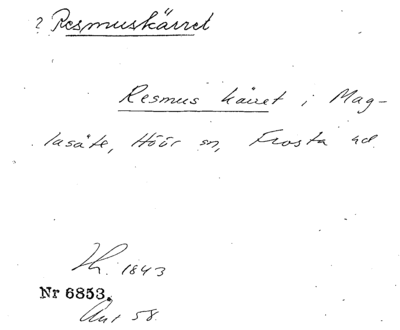 ? Resmuskärret
Resmus kärret i Mag-
lasäte, Höör sn, Frosta hd
1843
Nr 6853.
58